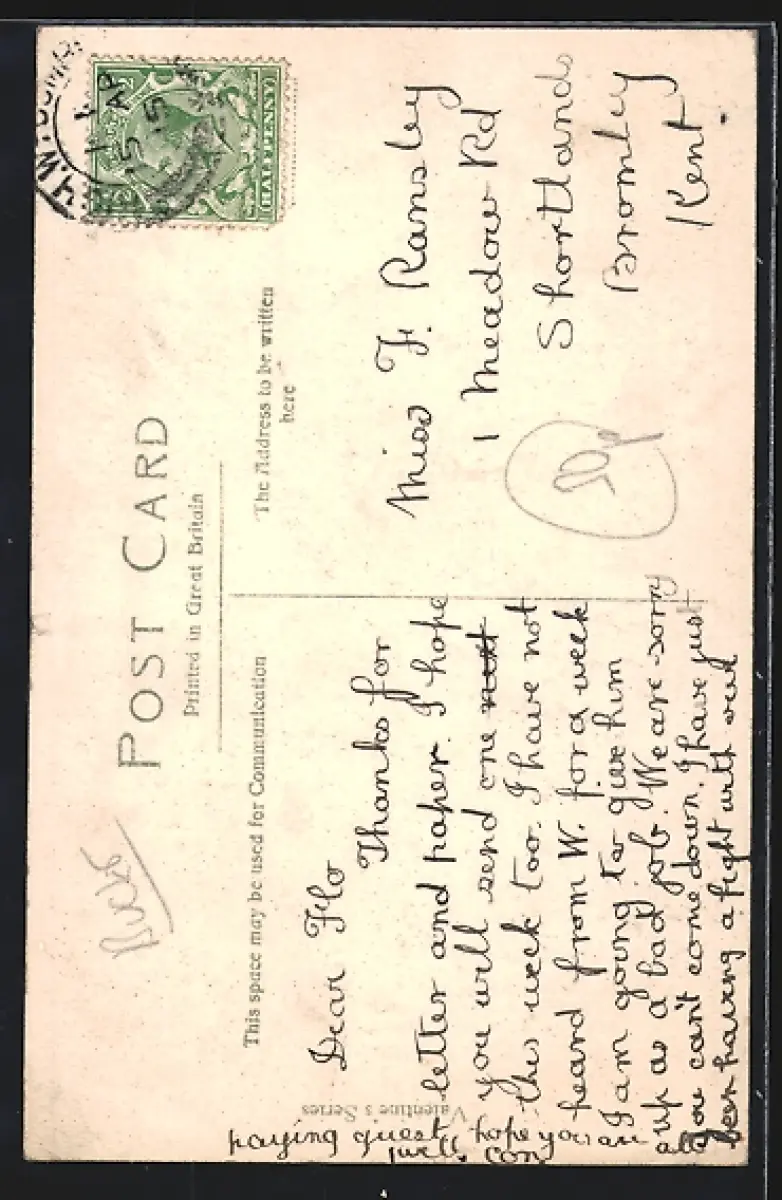 POST CARD
Printed in Great Britain
This space may be used for Communication
The Address to be written
here
Bucks
HALFPENNY
AP
15
15
Dear Flo
Thanks for
letter and paper. I hope
you will send one next
this week too. I have not
heard from W. for a week
I am going to give him
up as a bad job. We are sorry
you can't come down. I have just
been having a fight with our
paying guest, hope you are
all well. Con
Miss F. Ransley
1 Meadow Rd
Shortlands
Bromley
Kent.
Valentine's Series